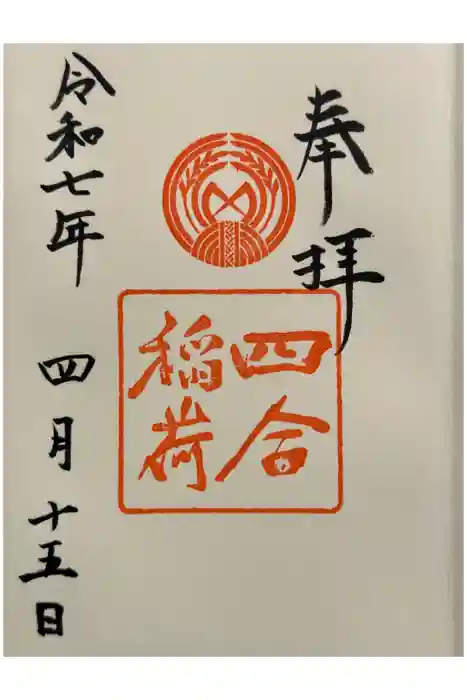 奉拝
四合
稲荷
令和七年
四月十五日